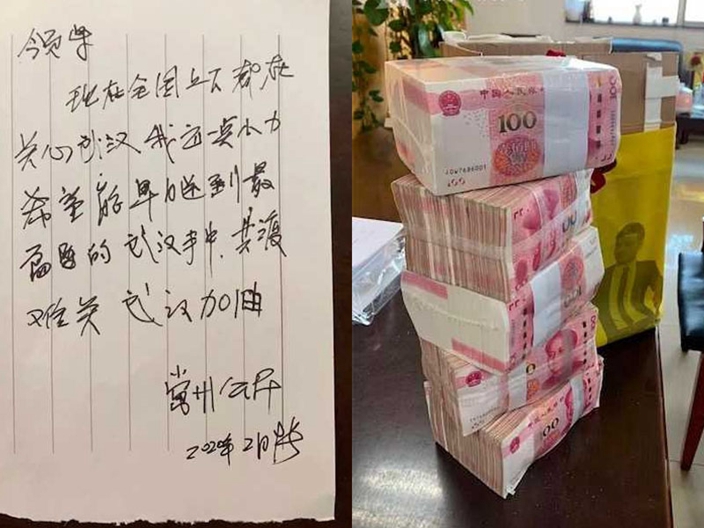 现在全国上下都在
关心武汉 我这点小力
希望能早日送到最
的武汉手中 共渡
难关 武汉加油
常州公民
2020年2月
中国人民银行
100
100
100
100